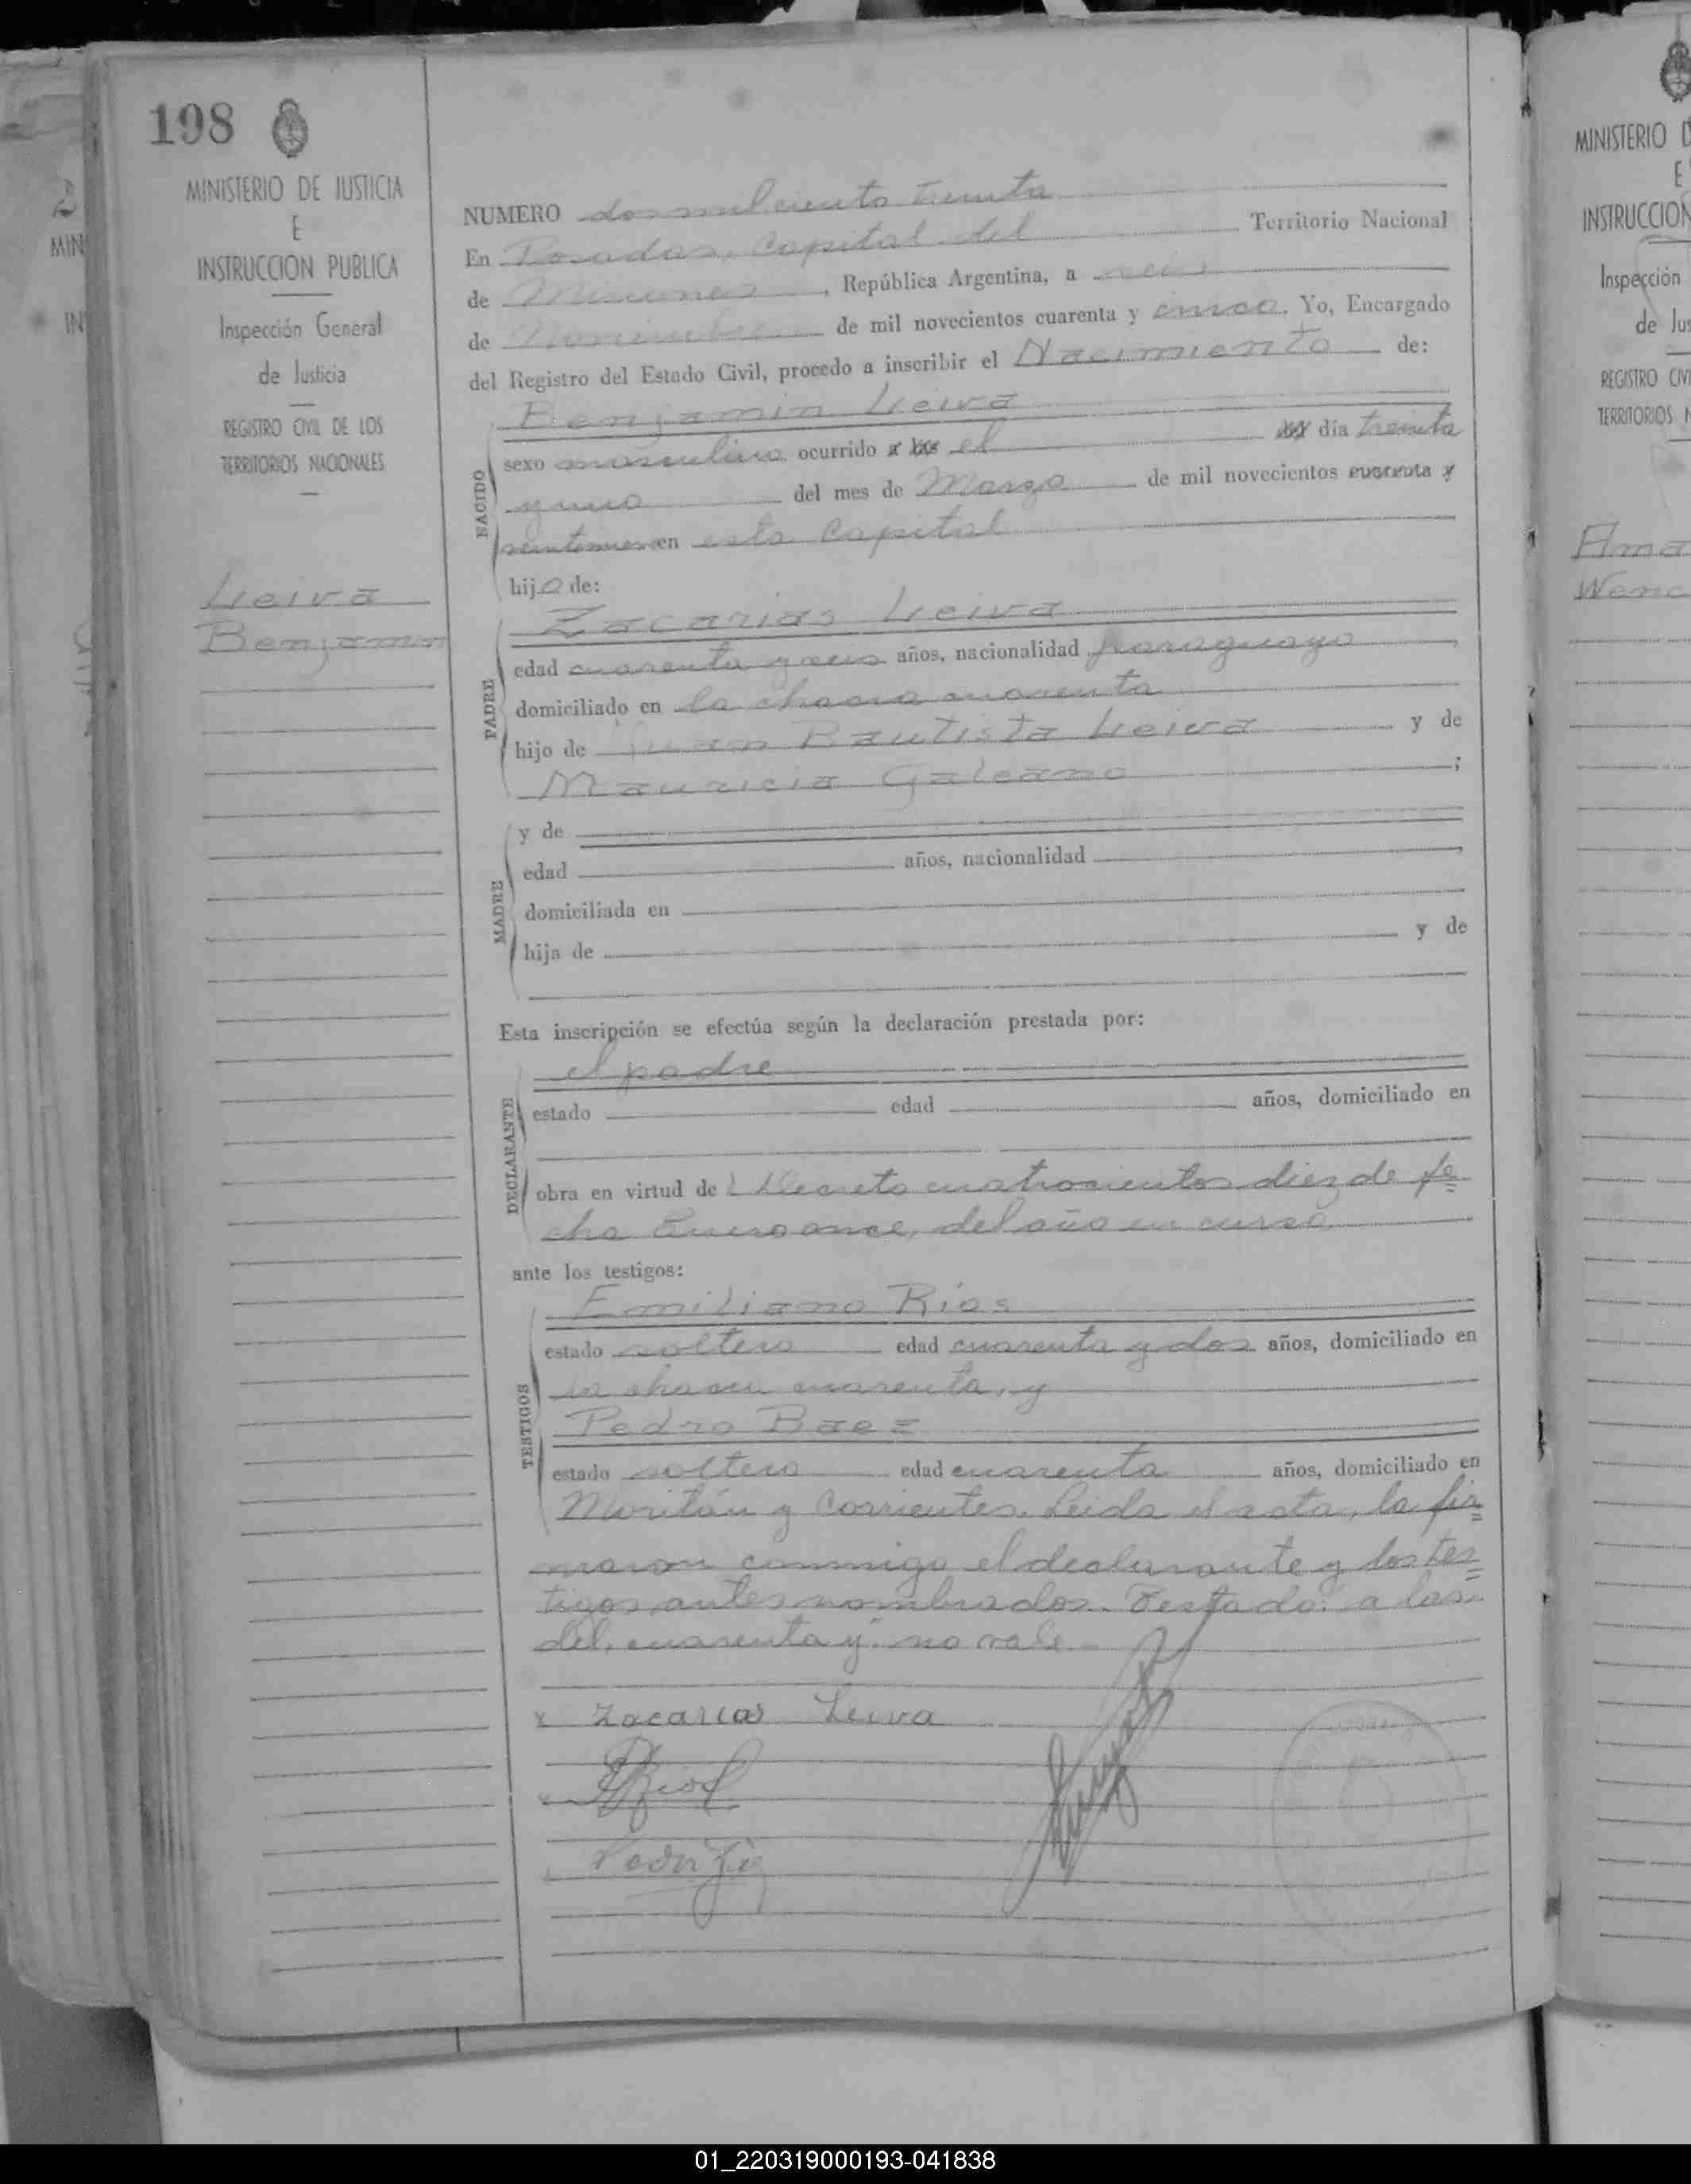 198
MINISTERIO DE JUSTICIA
E
INSTRUCCION PUBLICA
Inspección General
de Justicia
REGISTRO CIVIL DE LOS
TERRITORIOS NACIONALES
Leiva
Benjamin
NUMERO dos mil ciento treinta
En Posadas, Capital del Territorio Nacional
de Misiones, República Argentina, a seis
de Noviembre de mil novecientos cuarenta y cinco. Yo, Encargado
del Registro del Estado Civil, procedo a inscribir el Nacimiento de:
NACIDO
Benjamin Leiva
sexo masculino ocurrido a las el del día treinta
y uno del mes de Marzo de mil novecientos cuarenta y
veintinueve en esta Capital
hijo de:
PADRE
Zacarias Leiva
edad cuarenta y seis años, nacionalidad paraguayo
domiciliado en la chacra cuarenta
hijo de Juan Bautista Leiva y de
Mauricia Galeano;
MADRE
y de
edad años, nacionalidad
domiciliada en
hija de y de
Esta inscripción se efectúa según la declaración prestada por:
DECLARANTE
el padre
estado edad años, domiciliado en
obra en virtud de Decreto cuatrocientos diez de fe
cha Enero once, del año en curso
ante los testigos:
TESTIGOS
Emiliano Ríos
estado soltero edad cuarenta y dos años, domiciliado en
la chacra cuarenta, y
Pedro Baez
estado soltero edad cuarenta años, domiciliado en
Moritán y Corrientes. Leida el acta, la fir
maron conmigo el declarante y los tes
tigos antes nombrados. Testado: a las
del, cuarenta y: no vale
x Zacarias Leiva
MINISTERIO D
E
INSTRUCCION
Inspección
de Jus
REGISTRO CIVI
TERRITORIOS N
Ama
Wenc
MIN
IN
01_220319000193-041838